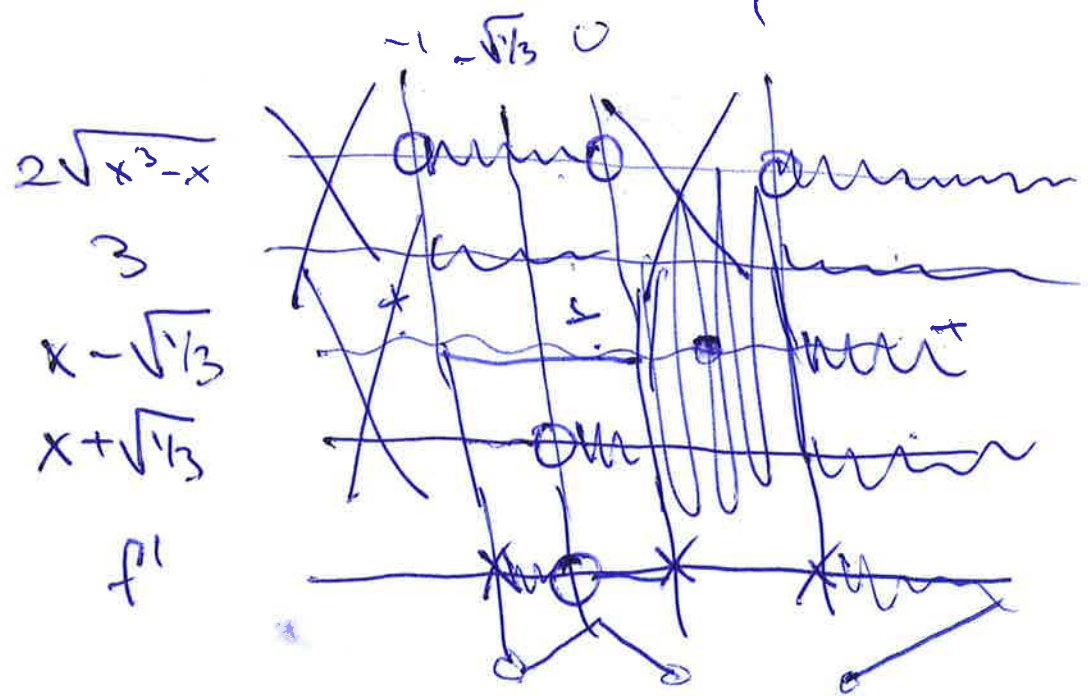 -1 -√1/3 0
2√x³-x
3
x-√1/3
x+√1/3
f'